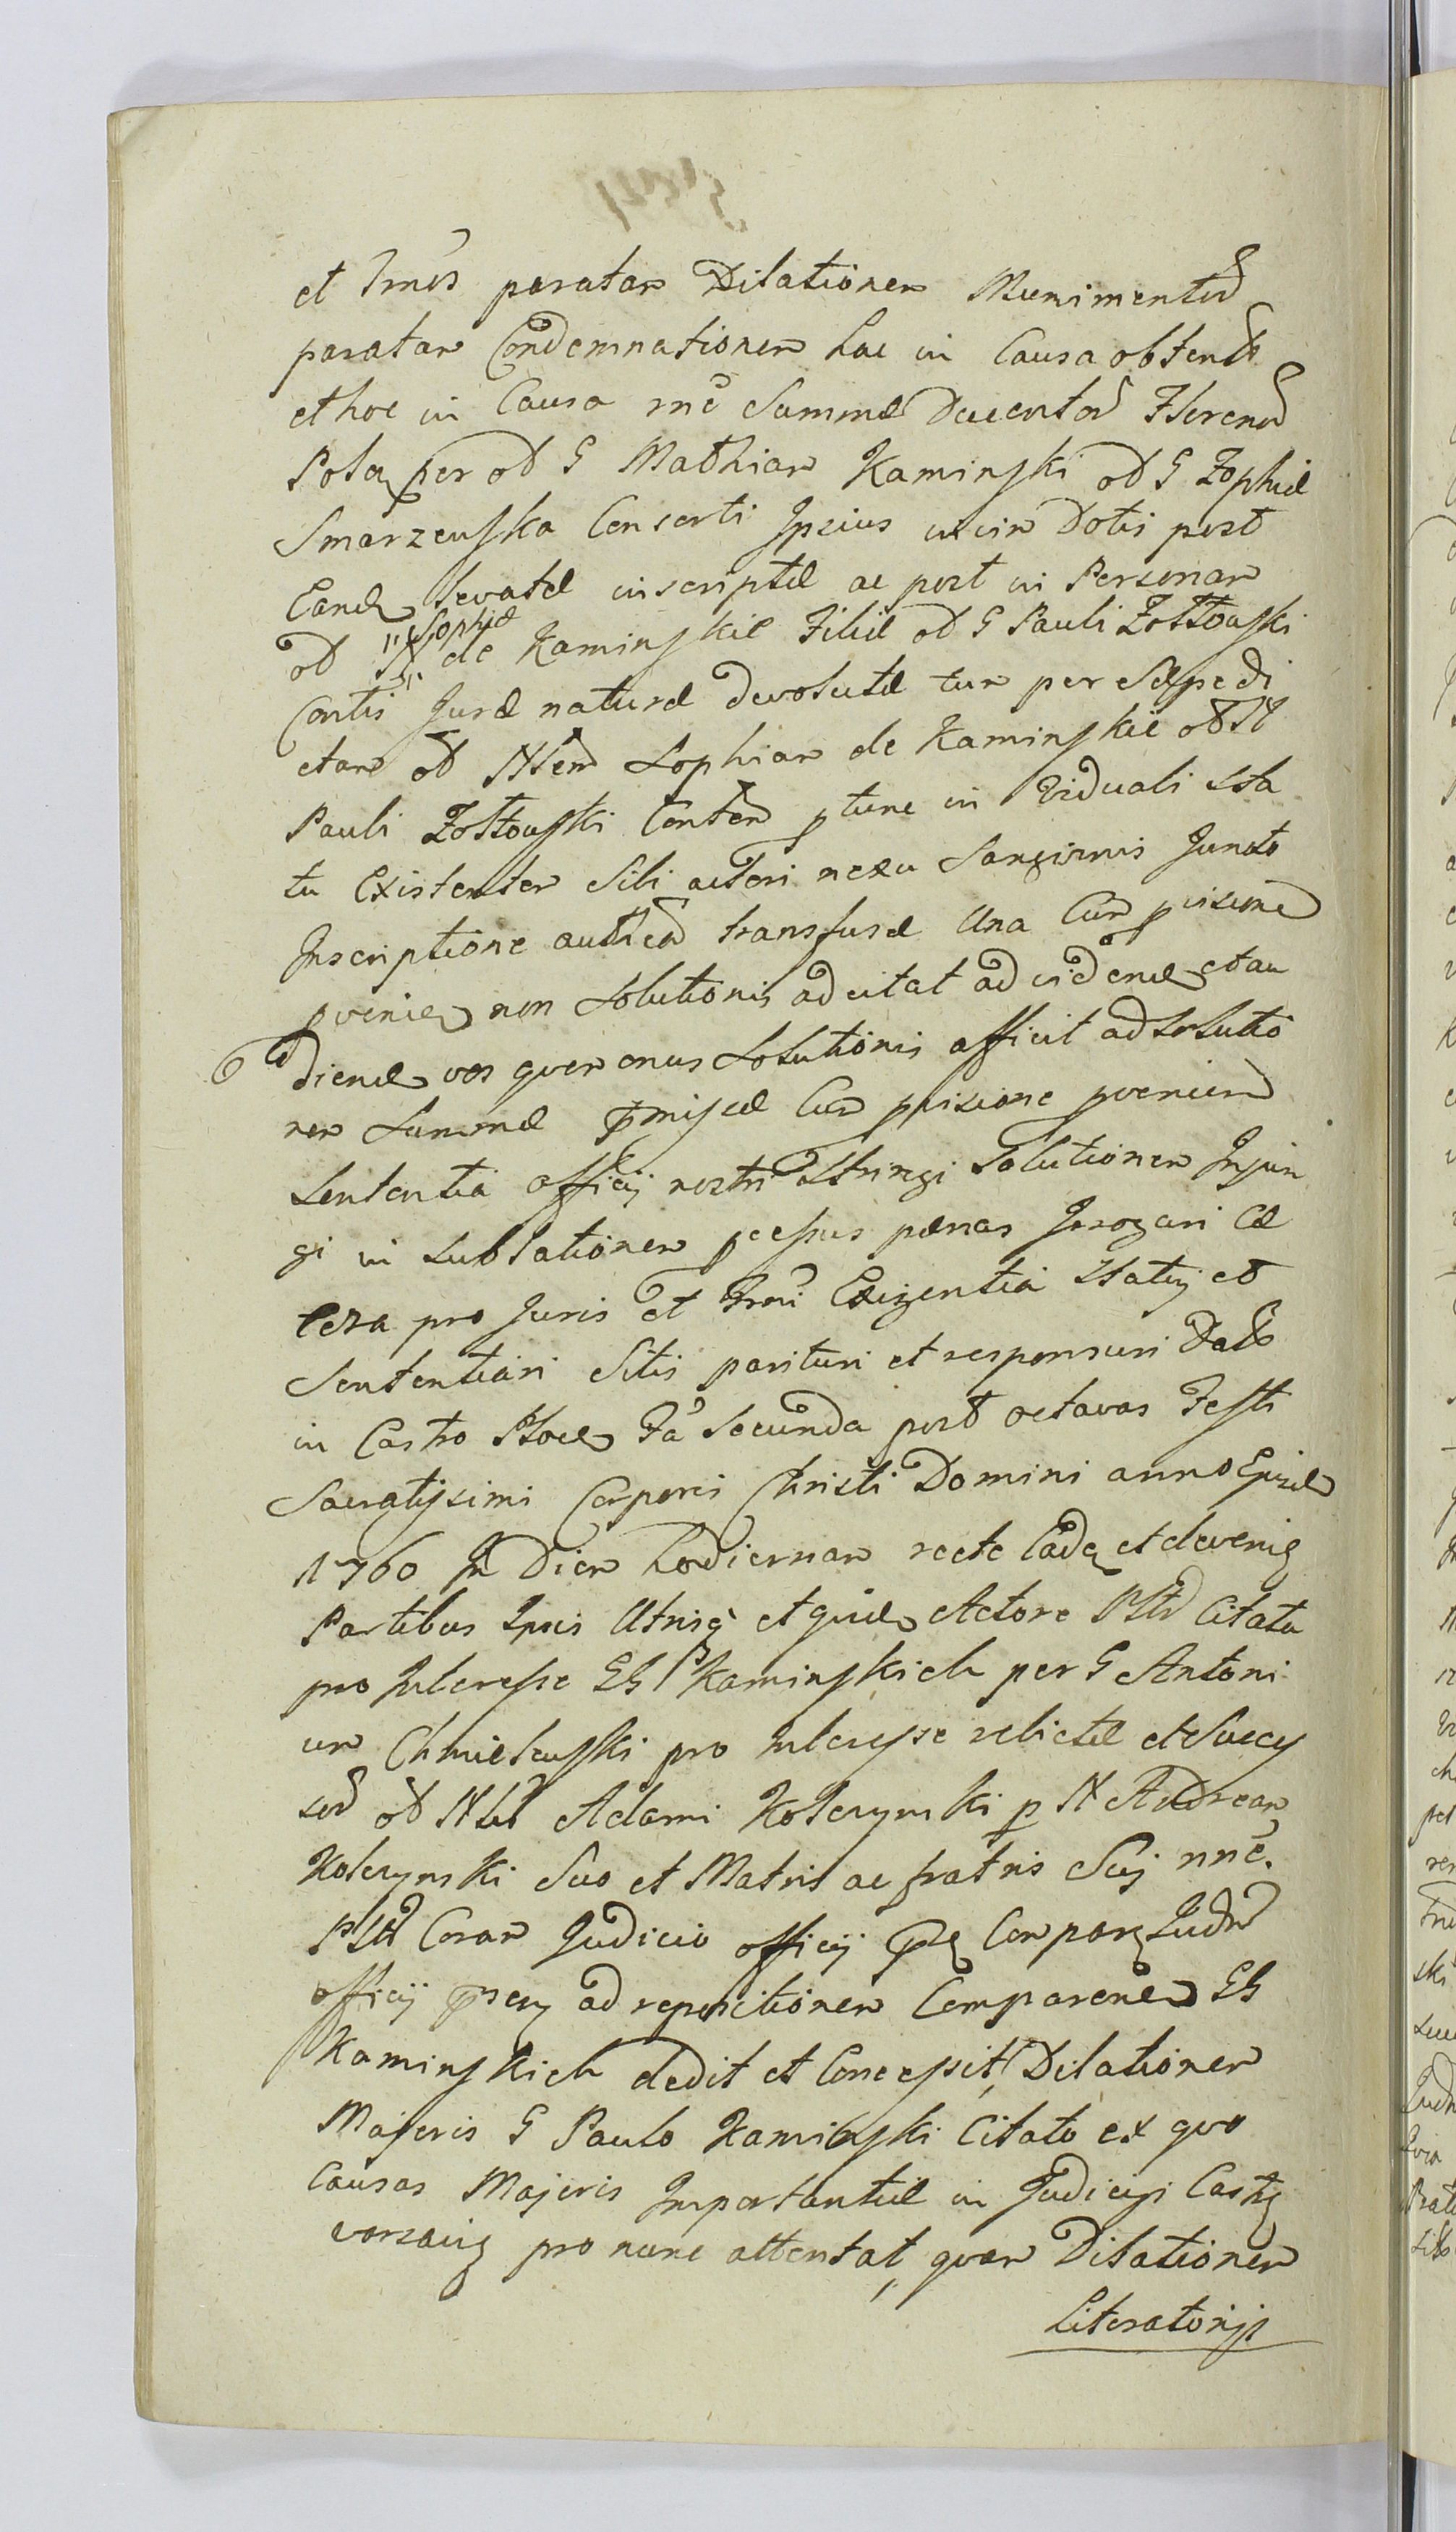 et Trmis paratam Dilationem Munimentor
paratam Condemnationem hac in Causa obtent
et hoc in Causa rne Summæ Ducentor Florenor
Pola per od G Mathiam Kaminski od G Zophiæ
Smarzewska Consorti Ipsius in vim Dotis post
Eand levatæ inscriptæ ac post in Personam
od N Sophiæ de Kaminskie Filiæ od G Pauli Zołtowski
Contis Juræ naturæ devolutæ tum per Sæpedi
ctam od Nlem Sophiam de Kaminskie od N
Pauli Zołtowski Contem ptunc in Viduali Sta
tu Existentem Sibi actori nexu Sangvinis Juncto
Inscriptione authen transfusæ Una Cum pvisione
pvenien non Solutionis adcitat ad vidend et au
diend vos qvem onus Solutionis afficit ad Solutio
nem Summæ pmissæ Cum pvisione pvenien
Sententia officij nostri Stringi Solutionem Injun
gi in Sublationem pcessus pænas Irrogari Cæ
tera pro Juris et Trmi Exigentia Statuj et
Sententiari Sitis parituri et responsuri Datt
in Castro Ploc Fa Secunda post octavas Festi
Sacratissimi Corporis Christi Domini anno Ejusd
1760 In Diem hodiernam recte Cade et deveni
Partibus Ipsis Utrisq et quid Actore Pltr Citatu
pro Interesse GG Kaminskich per G Antoni
um Chmielewski pro Interesse relictæ et Succes
sor od Nlis Adami Kolczynski p N Andream
Kolczynski Suo et Matris ac fratris Suj nne.
Pltr Coram Judicio officij pse Compare Judm
officij psen ad repositionem Comparend GG
Kaminskich dedit et Concessit Dilationem
Majoris G Paulo Kaminski Citato ex qvo
Causas Majoris Importantiæ in Judicijs Castr
versan pro nunc attentat, qvam Dilationem
Literatorijs